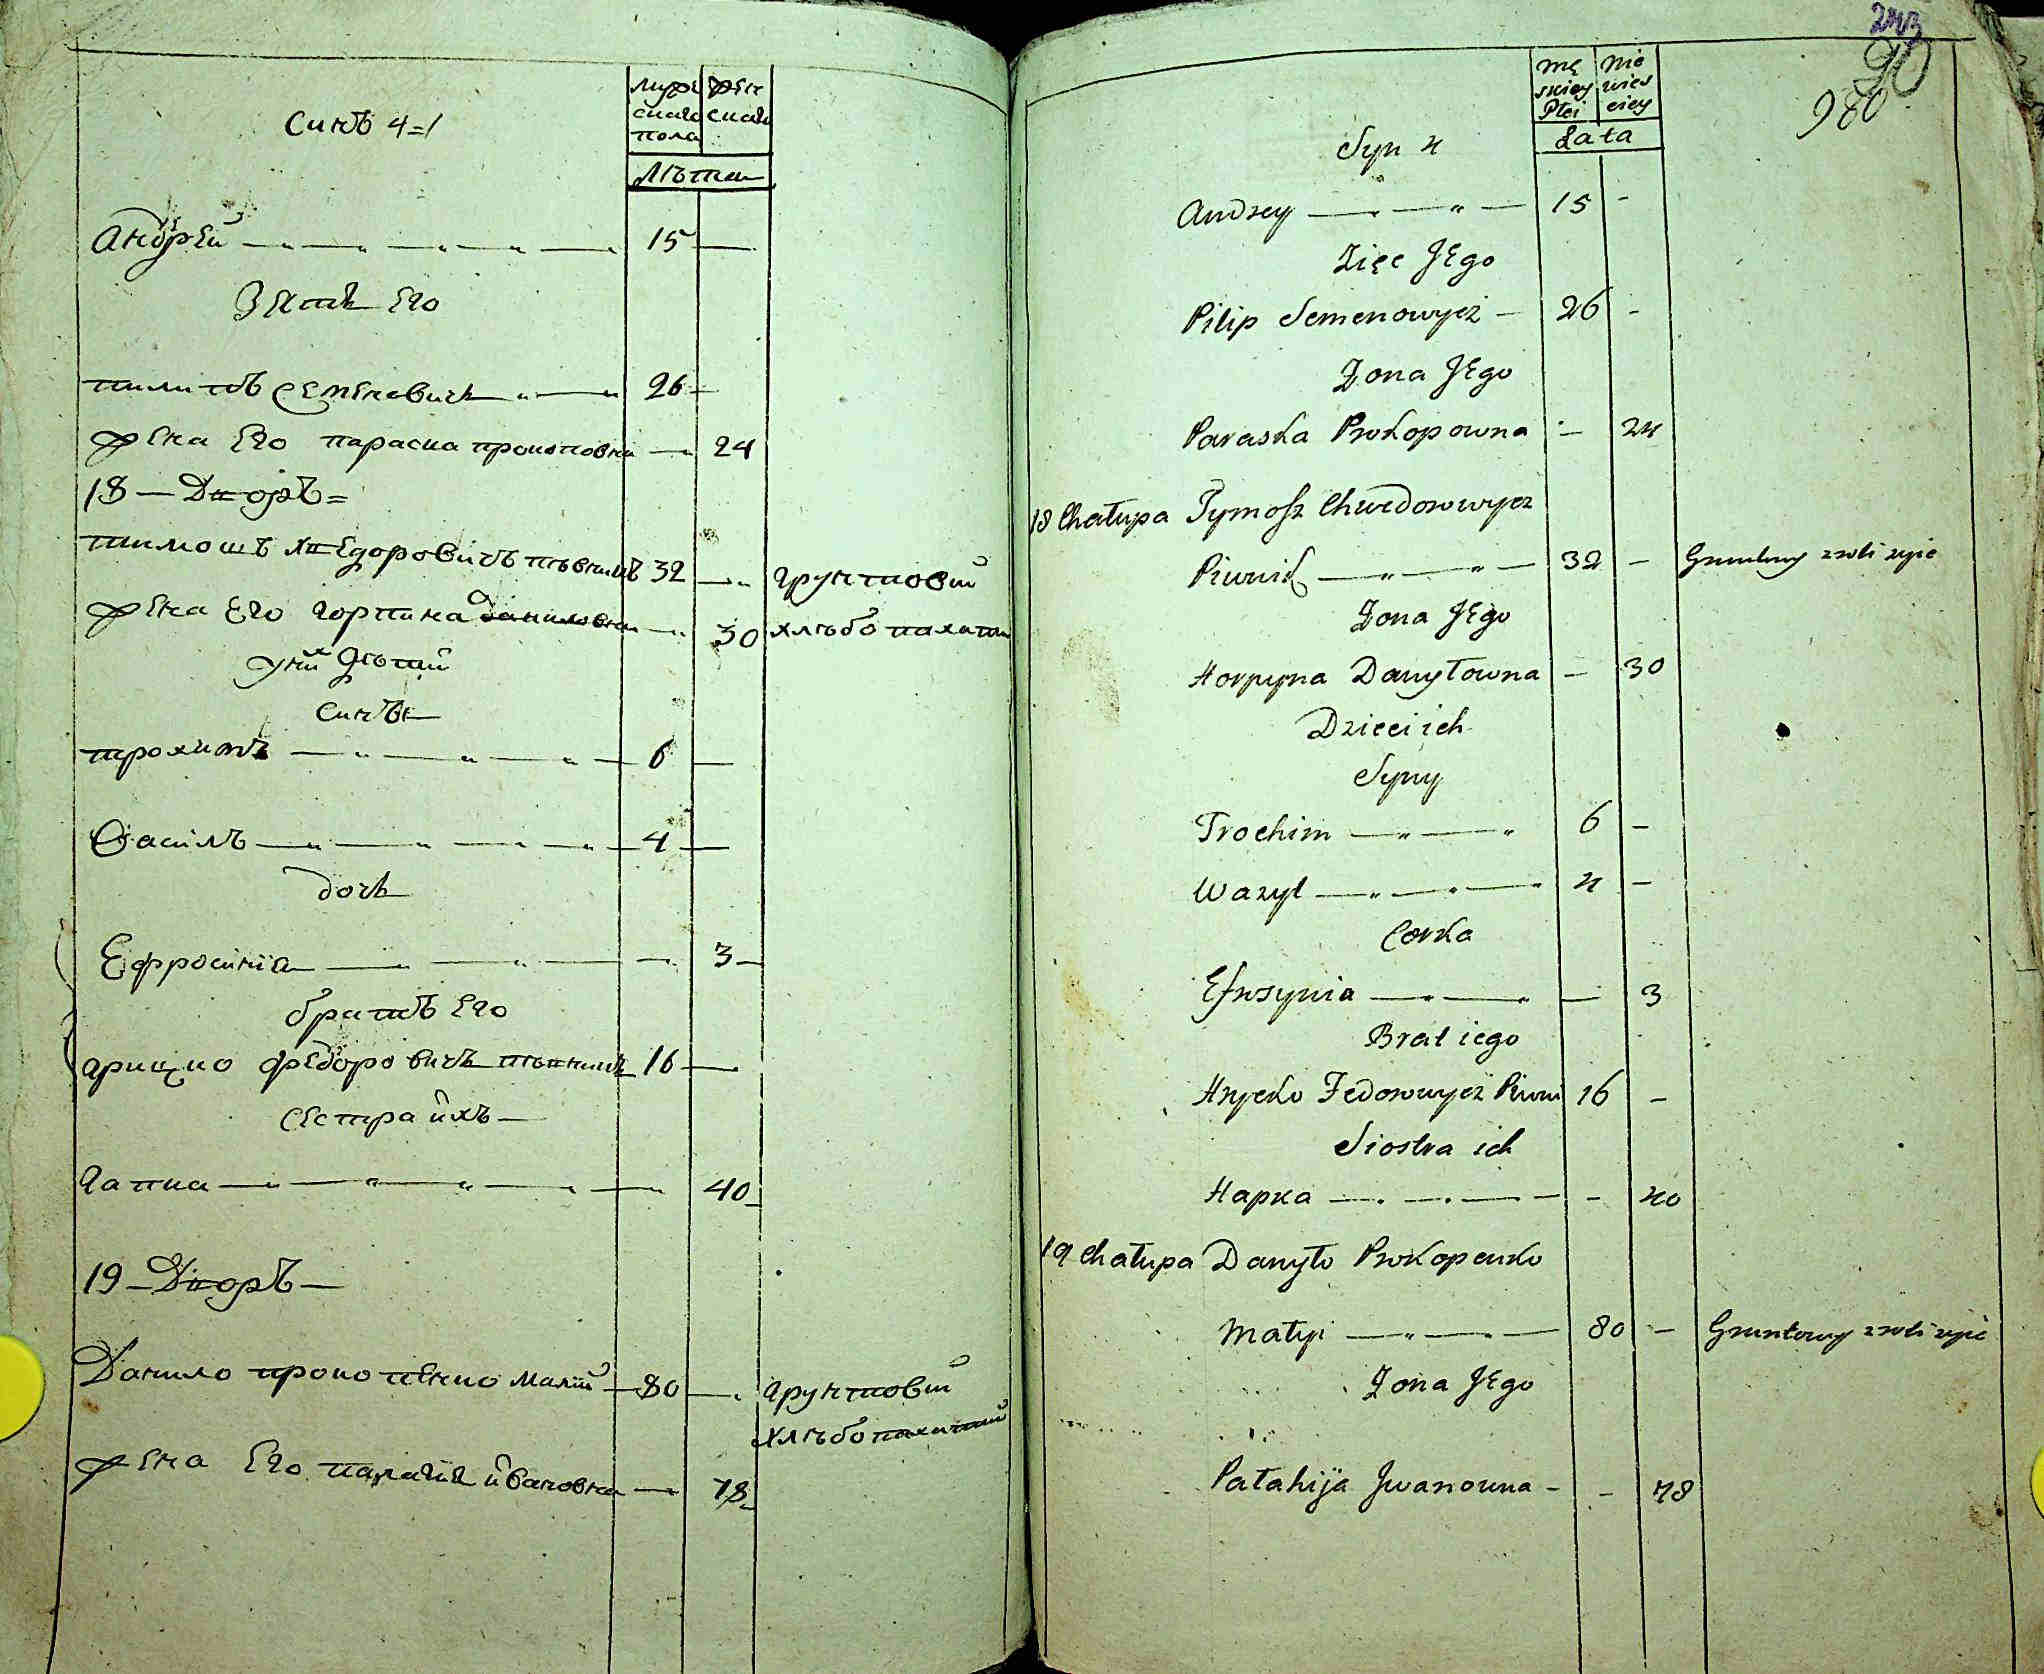 муж жен
ская ская
пола
Лѣта
Синъ 4=1
Андрей 15
Зять Его
пилипъ Семеновичь 26
жена Его параска прокоповна 24
18 — Дворъ =
тимошъ хведоровичъ пѣвникъ 32 грунтовий
жена Его горпина даниловна 30 хлѣбопахатни
у них дѣтий
Синъи
трохимъ 6
Василь 4
дочь
Ефросинїа 3
братъ Его
грицко федоровичь пѣвникъ 16
Сестра ихъ —
гапка 40
19 — Дворъ —
Данило прокопенко малий 80 грунтовий
хлѣбопахатний
жена Его палагия ивановна 78
243
20
980
Mę Nie
skiey wies
Płci ciey
Lata
Syn 4
Andrzey 15 -
Zięc JEgo
Pilip Semenowycz 26 -
Zona JEgo
Paraska Prokopowna - 24
18 Chałupa Tymosz Chwedorowycz
Piwnik 32 - Gruntowy z roli zyie
Zona JEgo
Horpyna Danyłowna - 30
Dzieci ich
Syny
Trochim 6 -
Wazyl 4 -
Corka
Efrosynia - 3
Brat iego
Hrycko Fedorowycz Piwni 16 -
Siostra ich
Hapka - 40
19 Chałupa Danyło Prokopenko
Małyi 80 - Gruntowy z roli zyie
Zona JEgo
Pałahija Jwanowna - 78